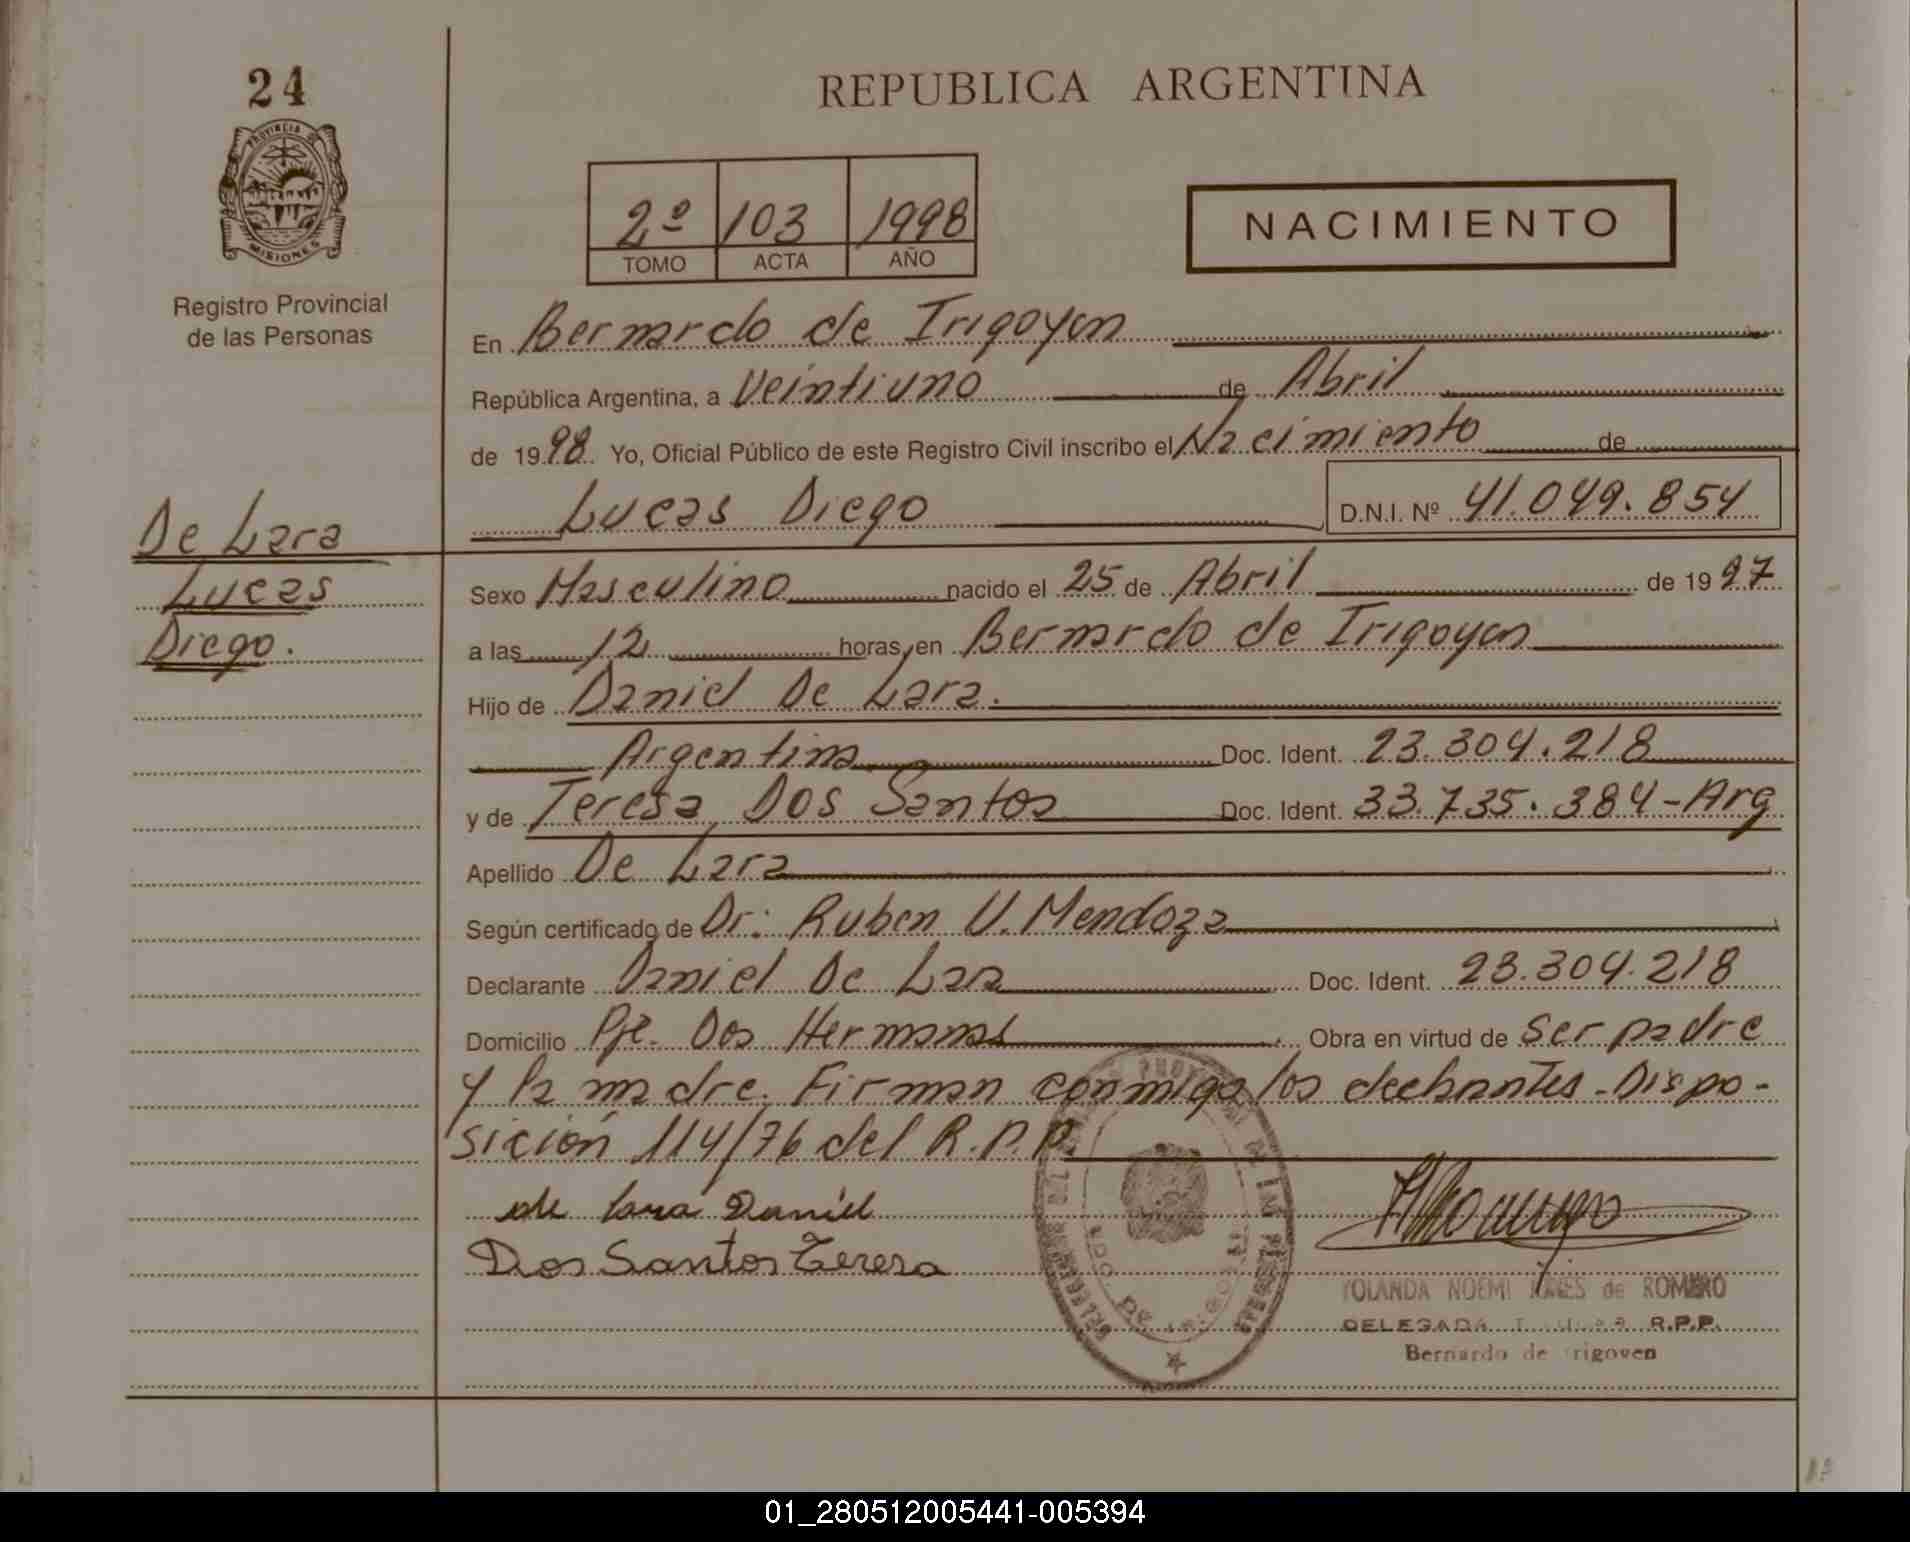 24
PROVINCIA DE
MISIONES
Registro Provincial
de las Personas
REPUBLICA ARGENTINA
2º 103 1998
TOMO ACTA AÑO
NACIMIENTO
En Bernardo de Irigoyen
República Argentina, a Veintiuno de Abril
de 1998 Yo, Oficial Público de este Registro Civil inscribo el Nacimiento de
Lucas Diego D.N.I. Nº 41.049.854
De Lara
Lucas
Diego.
Sexo Masculino nacido el 25 de Abril de 1997
a las 12 horas, en Bernardo de Irigoyen
Hijo de Daniel De Lara.
Argentina Doc. Ident. 23.304.218
y de Teresa Dos Santos Doc. Ident. 33.735.384-Arg
Apellido De Lara
Según certificado de Dr: Ruben U. Mendoza
Declarante Daniel De Lara Doc. Ident. 23.304.218
Domicilio Pje. Dos Hermanas Obra en virtud de ser padre
y la madre. Firman conmigo los declarantes - Dispo-
sición 114/76 del R.P.P.
de Lara Daniel
Dos Santos Teresa
YOLANDA NOEMI de ROMERO
DELEGADA R.P.P.
Bernardo de Irigoyen
01_280512005441-005394